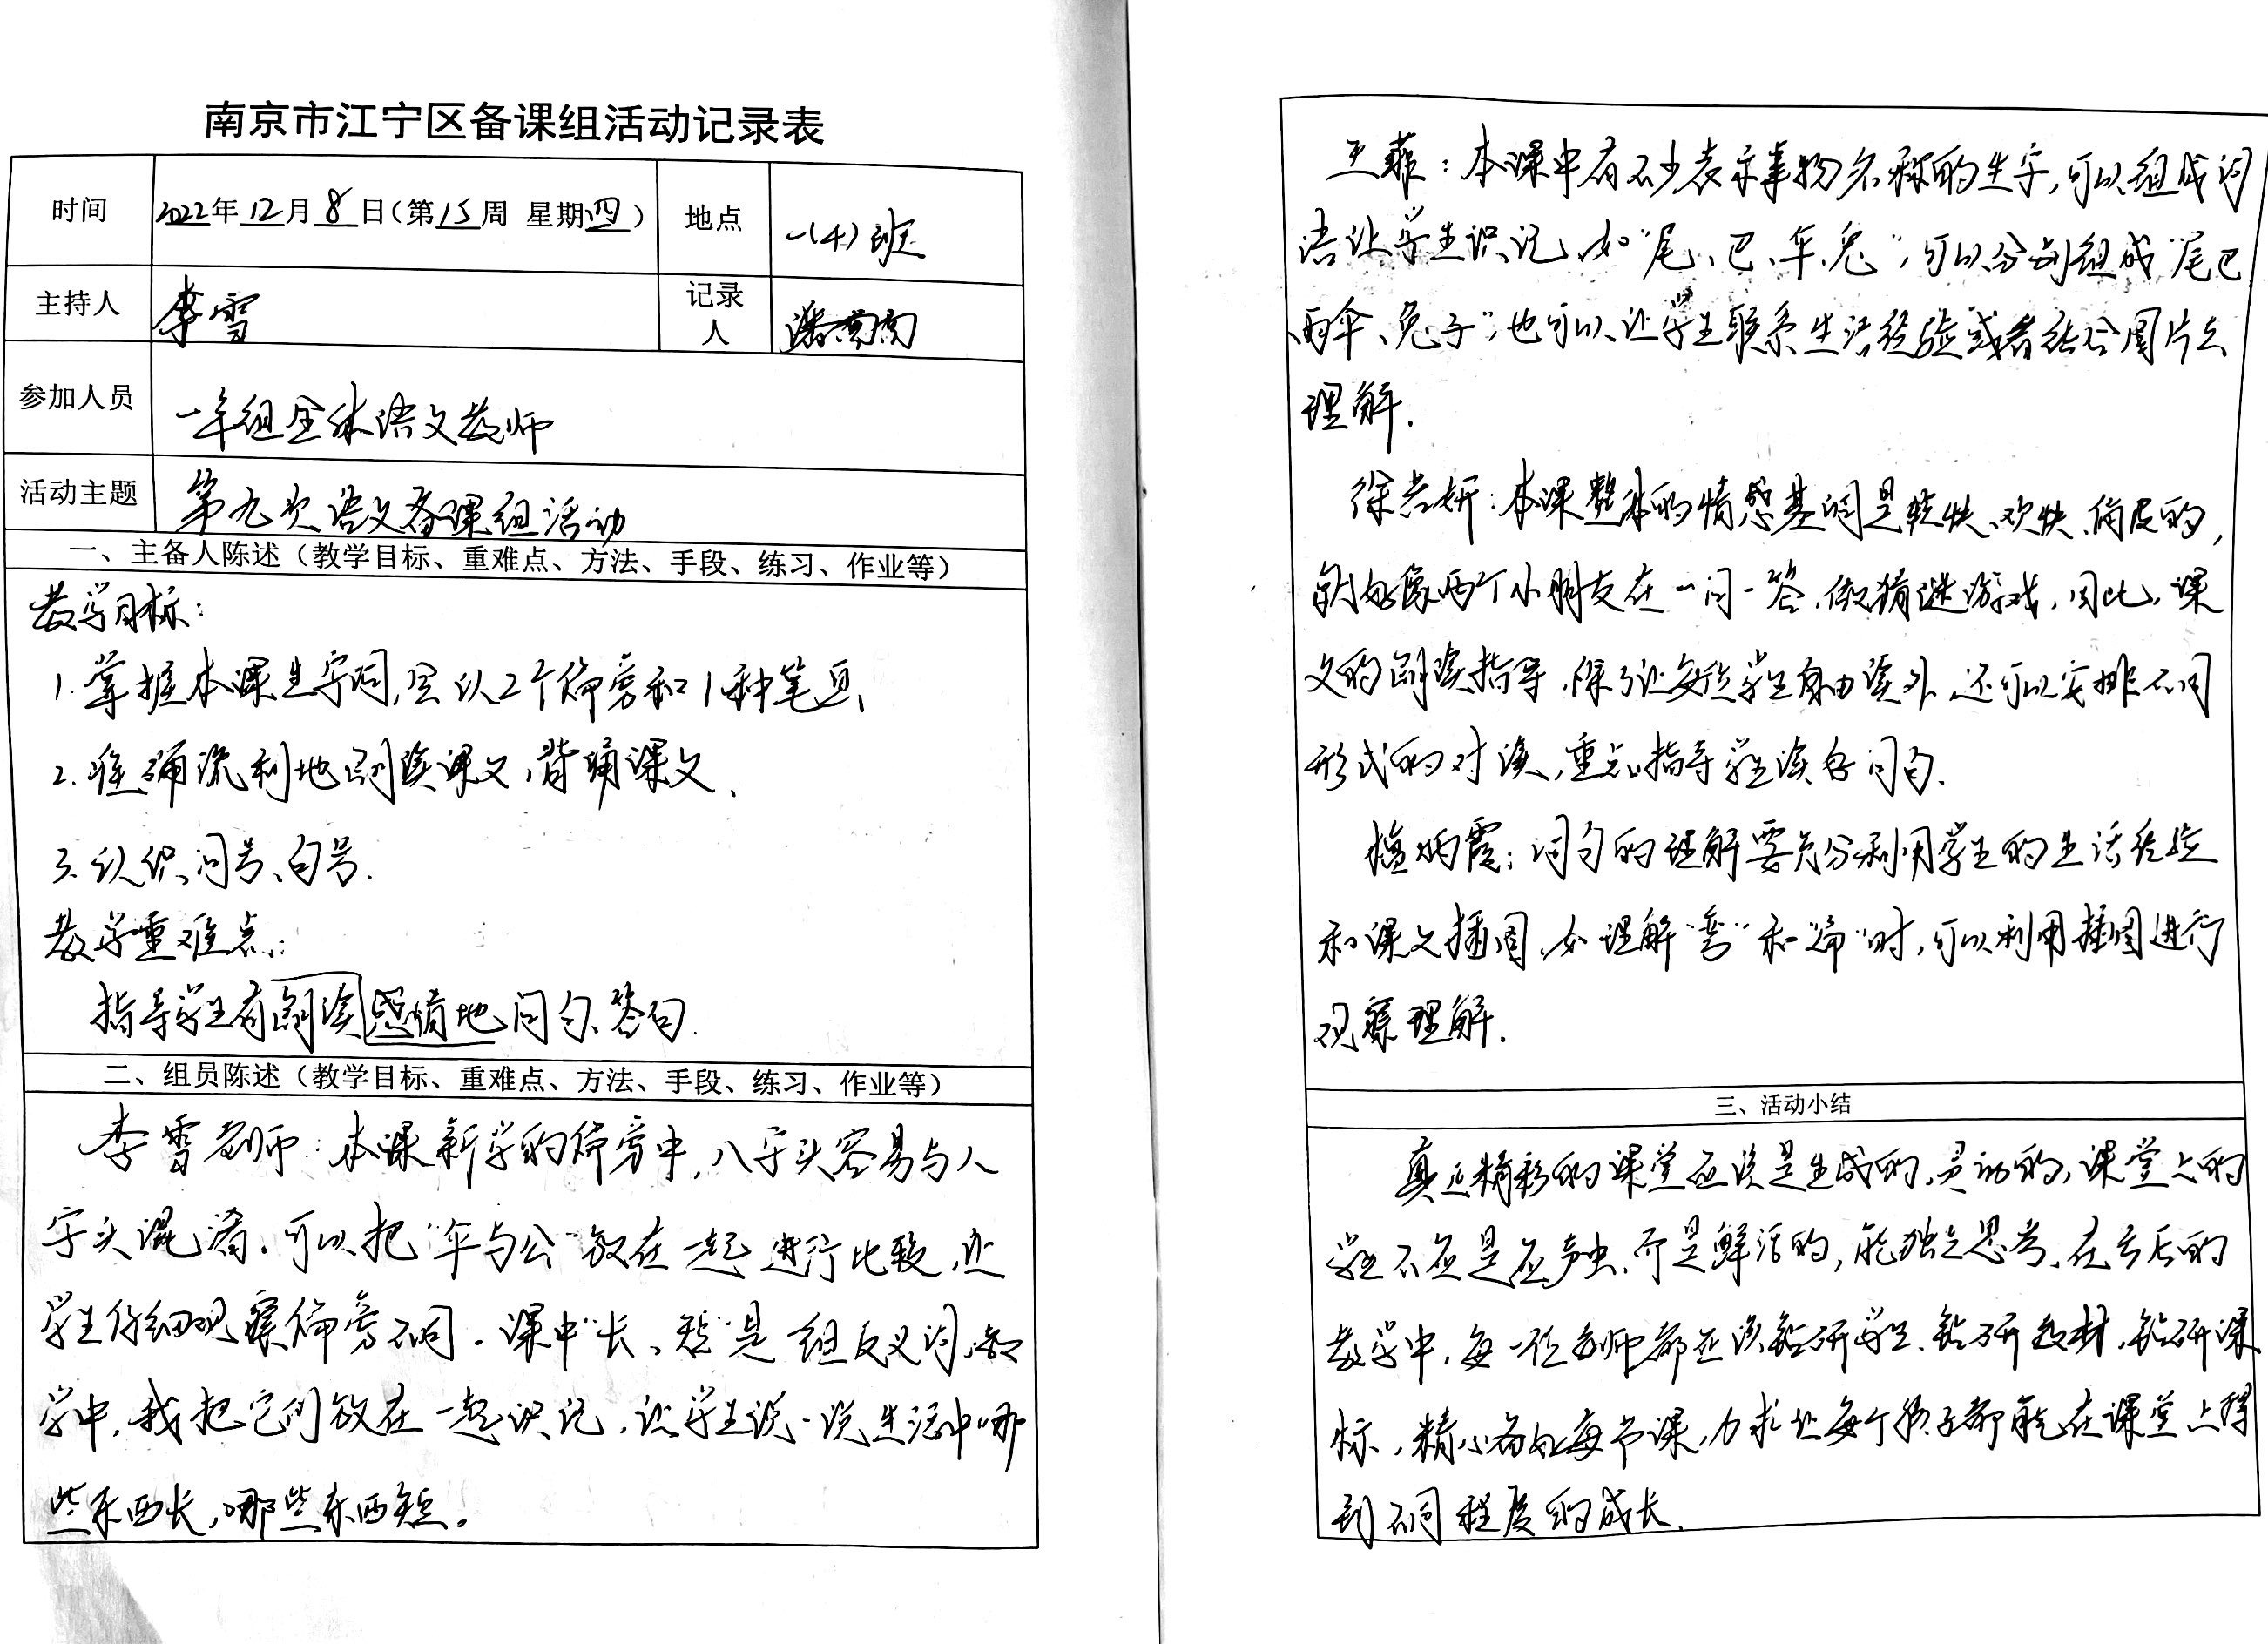 南京市江宁区备课组活动记录表
时间 2022年12月8日(第15周 星期四) 地点 一(4)班
主持人 李雪 记录人
参加人员 一年组全体语文教师
活动主题 第九次语文备课组活动
一、主备人陈述（教学目标、重难点、方法、手段、练习、作业等）
教学目标：
1.掌握本课生字词,会认2个偏旁和1种笔画
2.准确流利地朗读课文,背诵课文、
3.认识问号、句号.
教学重难点:
指导学生有朗读感情地问句、答句.
二、组员陈述（教学目标、重难点、方法、手段、练习、作业等）
李雪老师:本课新学的偏旁中,八字头容易与人
字头混淆.可以把“伞与公”放在一起进行比较,让
学生仔细观察偏旁不同.课中“长、短”是一组反义词,教
学中,我把它们放在一起识记,让学生说一说生活中哪
些东西长,哪些东西短。
王菲:本课中有不少表示事物名称的生字,可以组成词
语让学生识记,如“尾、巴、伞、兔”,可以分别组成“尾巴
、雨伞、兔子”,也可以让学生联系生活经验或者结合图片去
理解.
本课整体的情感基调是轻快、欢快、俏皮的,
就好像两个小朋友在一问一答,做猜谜游戏,因此,课
文的朗读指导,除了让每位学生自由读外,还可以安排不同
形式的对读,重点指导学生读好问句.
词句的理解要充分利用学生的生活经验
和课文插图,如理解“弯”和“扁”时,可以利用插图进行
观察理解.
三、活动小结
真正精彩的课堂应该是生成的,灵动的,课堂上的
学生不应是应声虫,而是鲜活的,能独立思考,在今后的
教学中,每一位教师都应该钻研学生、钻研教材,钻研课
标,精心备好每节课,力求让每个孩子都能在课堂上得
到不同程度的成长.